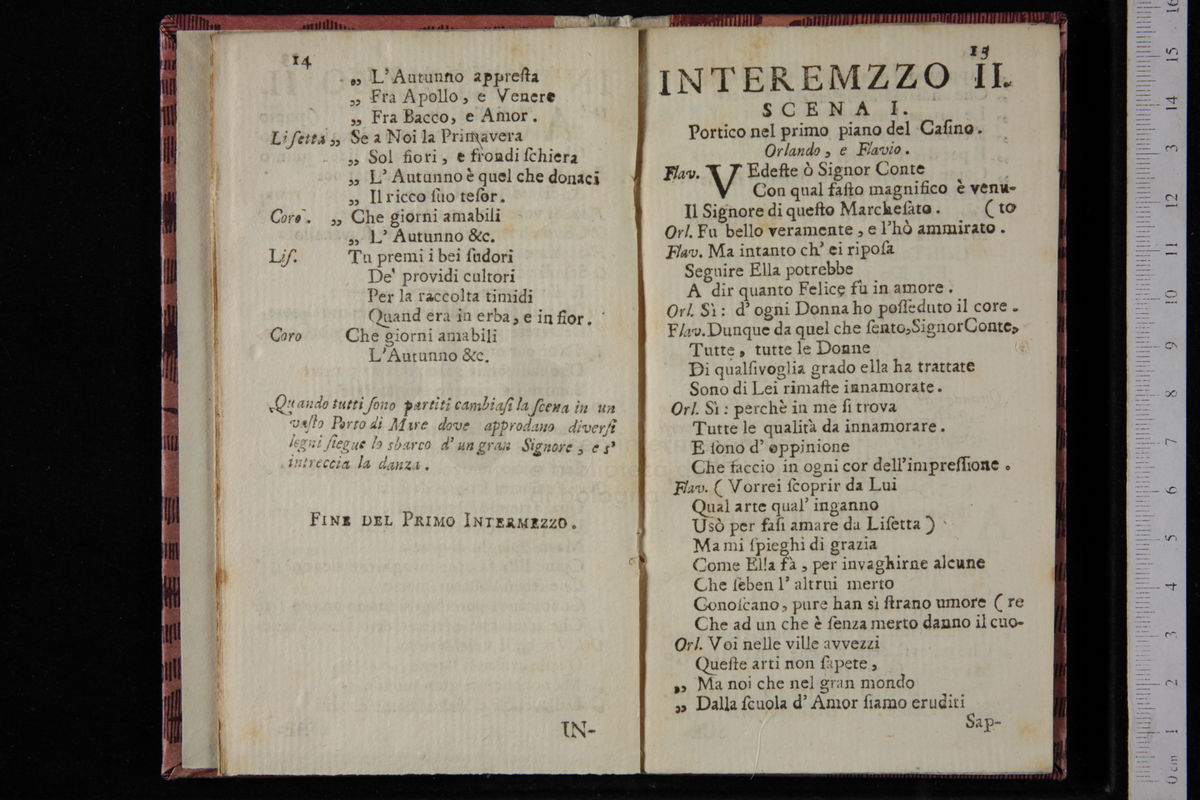 14
„ L'Autunno appreſta
„ Fra Apollo, e Venere
„ Fra Bacco, e Amor.
Liſetta „ Se a Noi la Primavera
„ Sol fiori, e frondi ſchiera
„ L'Autunno è quel che donaci
„ Il ricco ſuo teſor.
Coro. „ Che giorni amabili
„ L'Autunno &c.
Liſ. Tu premi i bei ſudori
De' providi cultori
Per la raccolta timidi
Quand era in erba, e in fior.
Coro Che giorni amabili
L'Autunno &c.
Quando tutti ſono partiti cambiaſi la ſcena in un
vaſto Porto di Mare dove approdano diverſi
legni ſiegue lo sbarco d'un gran Signore, e s'
intreccia la danza.
FINE DEL PRIMO INTERMEZZO.
IN-
15
INTEREMZZO II.
SCENA I.
Portico nel primo piano del Caſino.
Orlando, e Flavio.
Flav. VEdeſte ò Signor Conte
Con qual faſto magnifico è venu-
Il Signore di queſto Marcheſato. (to
Orl. Fu bello veramente, e l'hò ammirato.
Flav. Ma intanto ch' ei ripoſa
Seguire Ella potrebbe
A dir quanto Felice fù in amore.
Orl. Sì: d'ogni Donna ho poſſeduto il core.
Flav. Dunque da quel che ſento, Signor Conte,
Tutte, tutte le Donne
Di qualſivoglia grado ella ha trattate
Sono di Lei rimaſte innamorate.
Orl. Sì: perchè in me ſi trova
Tutte le qualità da innamorare.
E ſono d'oppinione
Che faccio in ogni cor dell'impreſſione.
Flav. (Vorrei ſcoprir da Lui
Qual arte qual' inganno
Usò per faſi amare da Liſetta)
Ma mi ſpieghi di grazia
Come Ella fà, per invaghirne alcune
Che ſeben l'altrui merto
Conoſcano, pure han sì ſtrano umore (re
Che ad un che è ſenza merto danno il cuo-
Orl. Voi nelle ville avvezzi
Queſte arti non ſapete,
„ Ma noi che nel gran mondo
„ Dalla ſcuola d'Amor ſiamo eruditi
Sap-